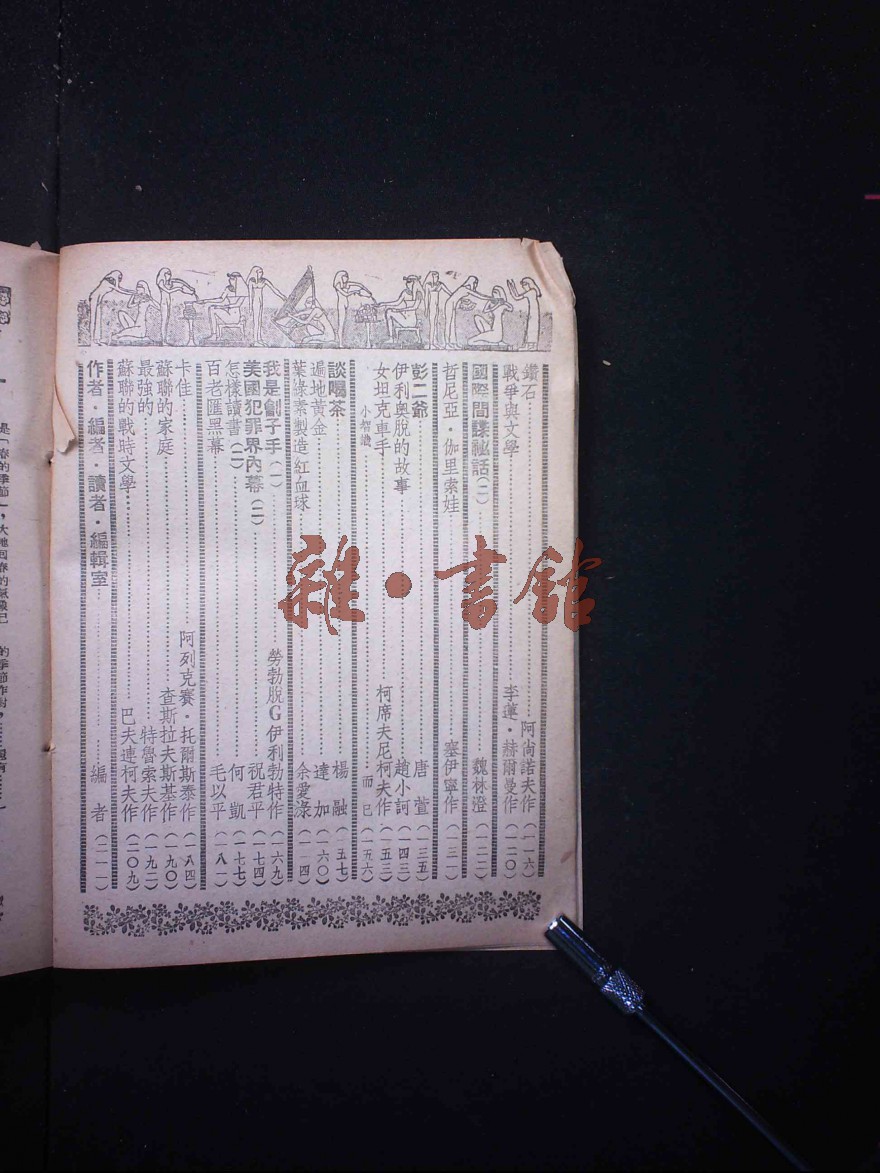 鑽石 阿尙諾夫作(一一六)
戰爭與文學 李蓮・赫爾曼作(一二〇)
國際間諜祕話(二) 魏林澄(一二二)
哲尼亞・伽里索娃 塞伊寧作(一三一)
彭二爺 唐萱(一三五)
伊利奧脫的故事 趙小訶(一四三)
女坦克車手 柯席夫尼柯夫作(一五三)
而已(一五六)
談喝茶 楊融(一五七)
遍地黃金 達加(一六〇)
葉綠素製造紅血球 余愛淥
我是劊子手(一) 勞勃脫G伊利勃特作(一六九)
美國犯罪界內幕(二) 祝君平(一七四)
怎樣讀書(二) 何凱(一七七)
百老匯黑幕 毛以平(一八一)
卡佳 阿列克賽・托爾斯泰作(一八四)
蘇聯的家庭 查斯拉夫斯基作(一九〇)
最強的 特魯索夫作(一九二)
蘇聯的戰時文學 巴夫連柯夫作(二〇九)
作者・編者・讀者・編輯室 編者(二一一)
雜・書館